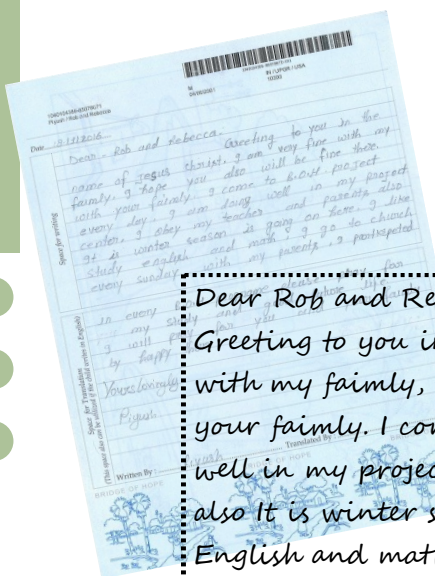 Piyush / Rob and Rebecca
IN / UPGR / USA
Date
Dear - Rob and Rebecca.
Greeting to you in the
name of Jesus christ. I am very fine with my
faimly. I hope you also will be fine there.
with your faimly I come to B.O.H. project
every day. I am doing well in my project
center. I obey my teacher and parents also
It is winter season is going on here. I like
study english and math's I go to church
every sunday with my parents. I
in every
my study and
I will
by happy for you
Yours lovingly
Piyush
Space for writing
Space for Translation
(This space also can be utilised if the child writes in English)
Written By :
Translated By :
BRIDGE OF HOPE
BRIDGE OF HOPE
Dear Rob and Re
Greeting to you i
with my faimly,
your faimly. I co
well in my projec
also It is winter s
English and mat